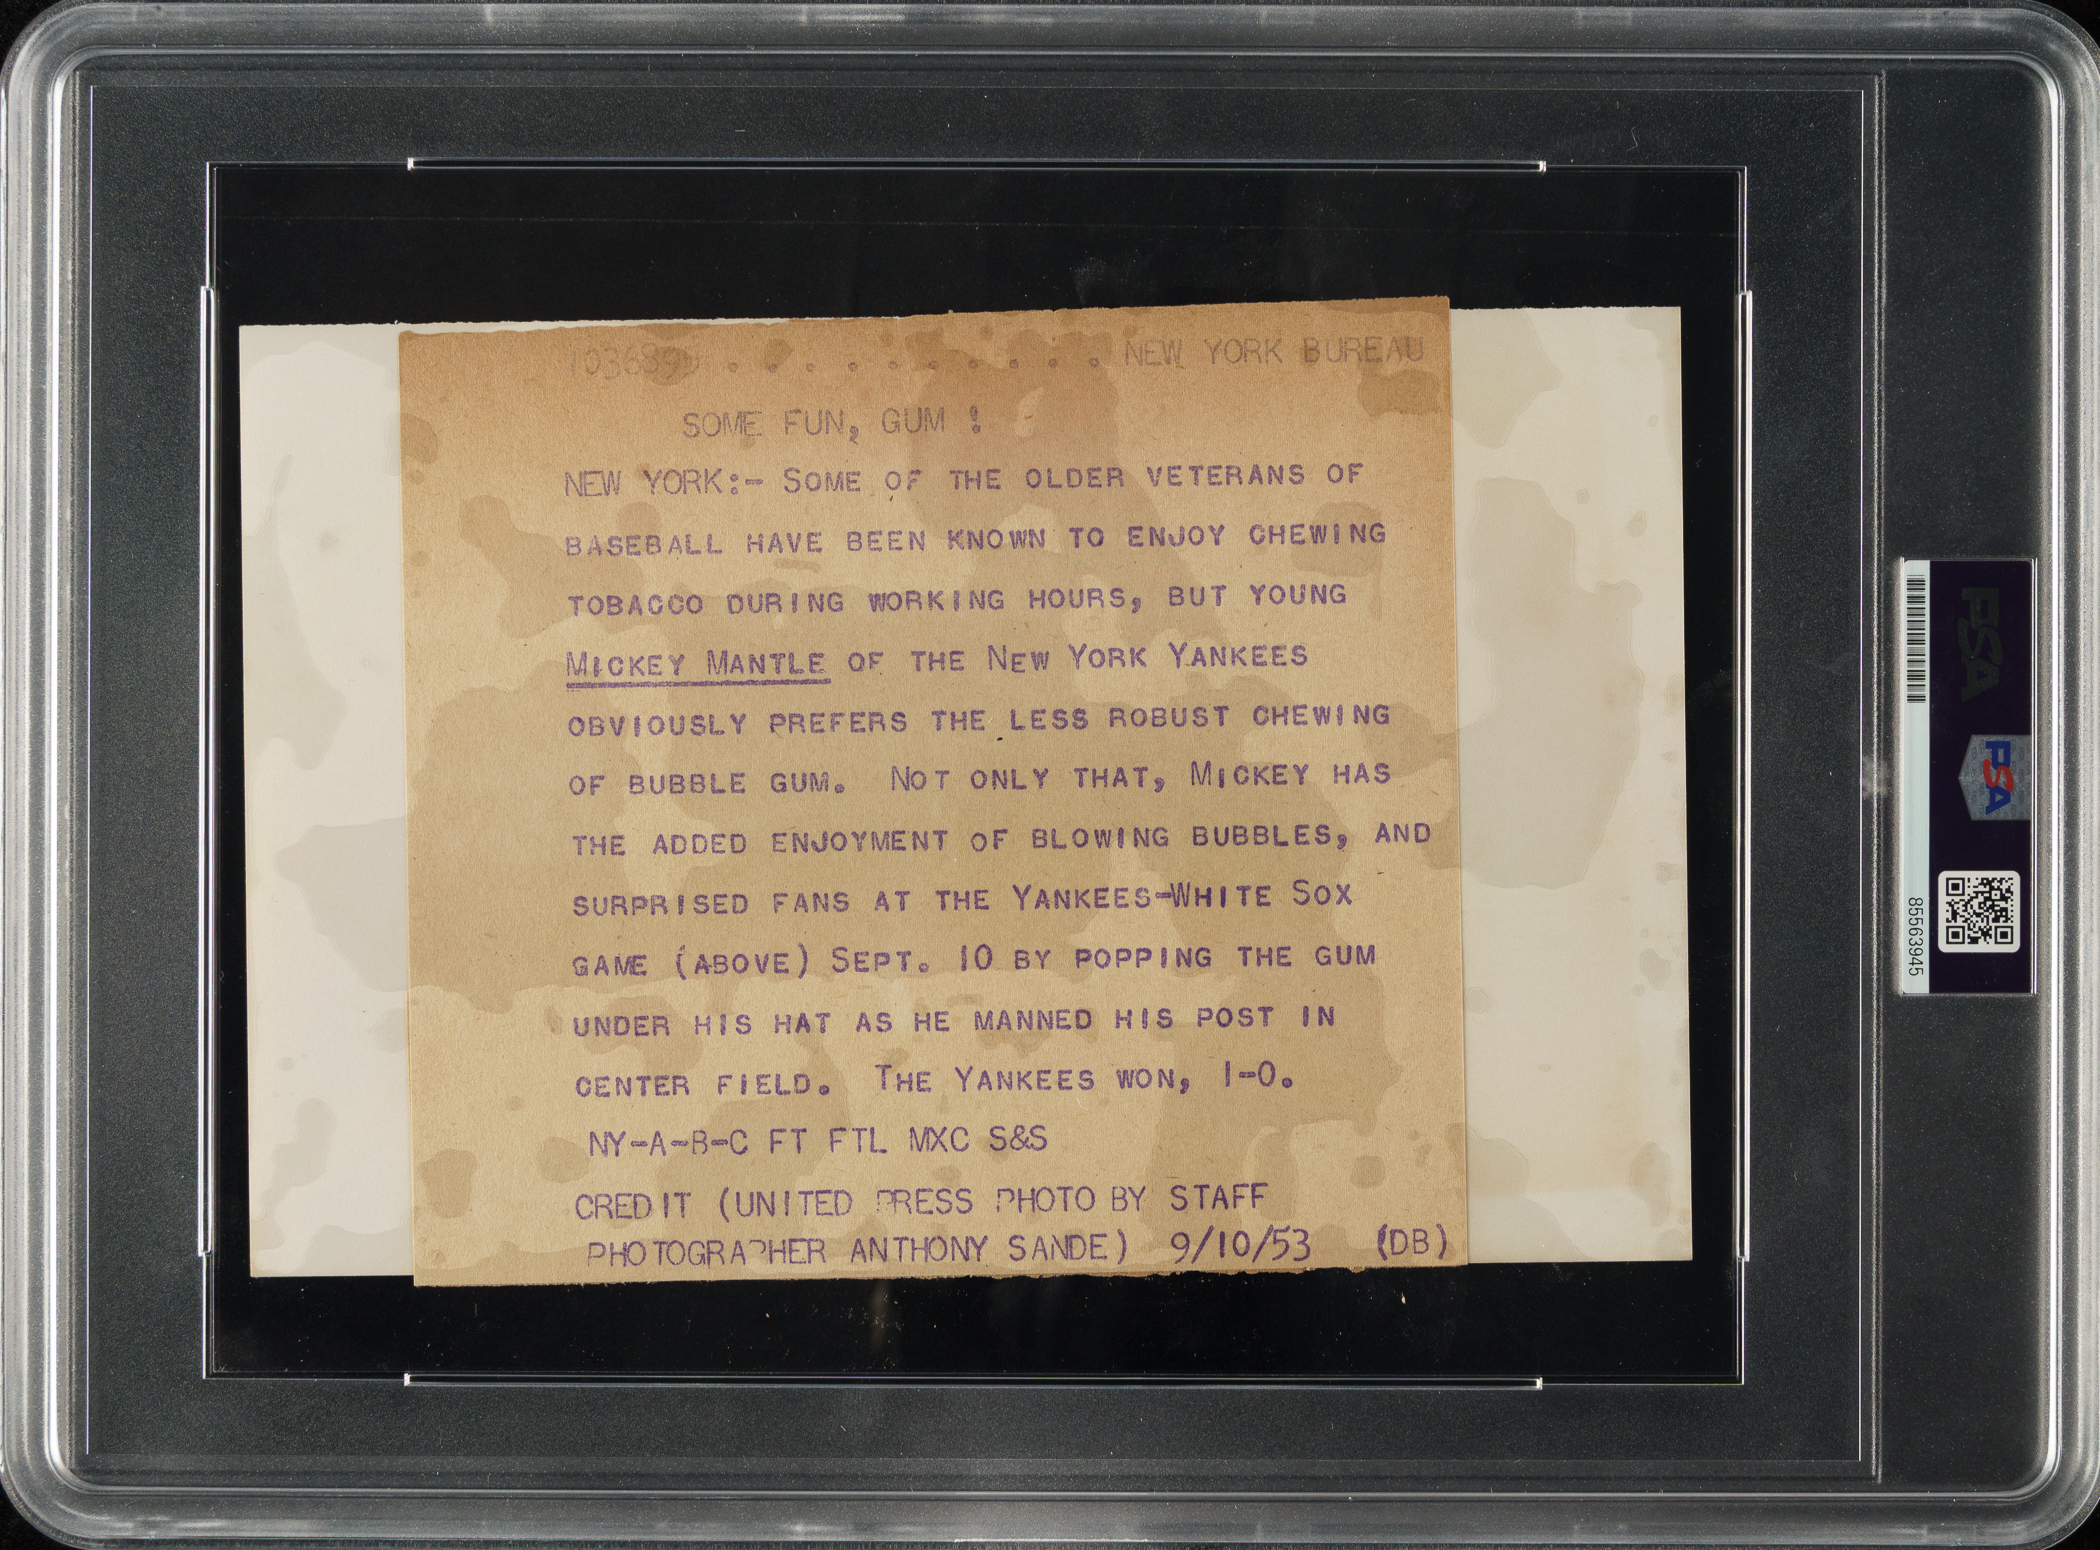 NEW YORK BUREAU
SOME FUN, GUM !
NEW YORK:- SOME OF THE OLDER VETERANS OF
BASEBALL HAVE BEEN KNOWN TO ENJOY CHEWING
TOBACCO DURING WORKING HOURS, BUT YOUNG
MICKEY MANTLE OF THE NEW YORK YANKEES
OBVIOUSLY PREFERS THE LESS ROBUST CHEWING
OF BUBBLE GUM. NOT ONLY THAT, MICKEY HAS
THE ADDED ENJOYMENT OF BLOWING BUBBLES, AND
SURPRISED FANS AT THE YANKEES-WHITE SOX
GAME (ABOVE) SEPT. 10 BY POPPING THE GUM
UNDER HIS HAT AS HE MANNED HIS POST IN
CENTER FIELD. THE YANKEES WON, 1-0.
NY-A-B-C FT FTL MXC S&S
CREDIT (UNITED PRESS PHOTO BY STAFF
PHOTOGRAPHER ANTHONY SANDE) 9/10/53 (DB)
PSA
PSA
85563945